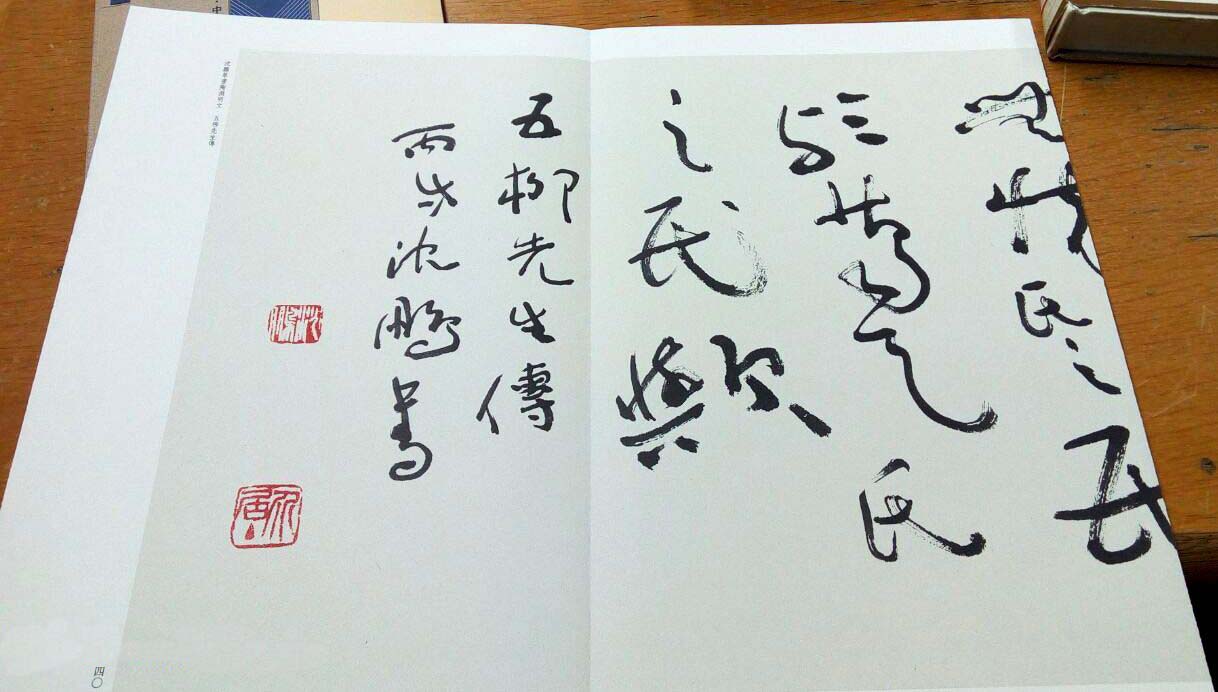 無懷氏之民
歟葛天氏
之民歟
五柳先生傳
丙戌沈鵬書
沈鵬
介居
沈鵬草書陶淵明文 五柳先生傳
四〇